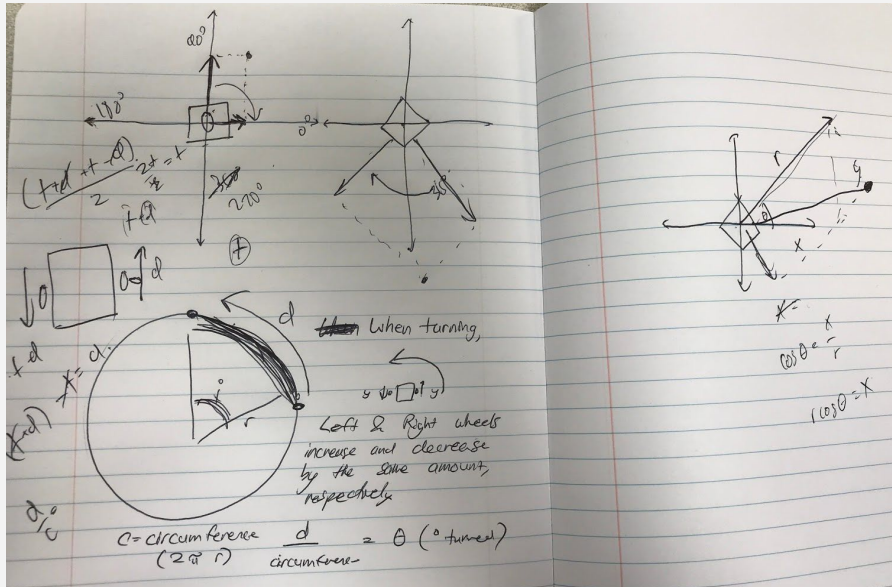 90°
180°
0°
270°
45°
(t+d + t-d)
2
2t
2
= t
t+d
d
t
+d
d
When turning,
y
y
Left & Right wheels
increase and decrease
by the same amount,
respectively
r
d/c
C = circumference
(2π r)
d
circumference
= θ (° turned)
r
y
θ
x
x =
cosθ = x
r
rcosθ = x